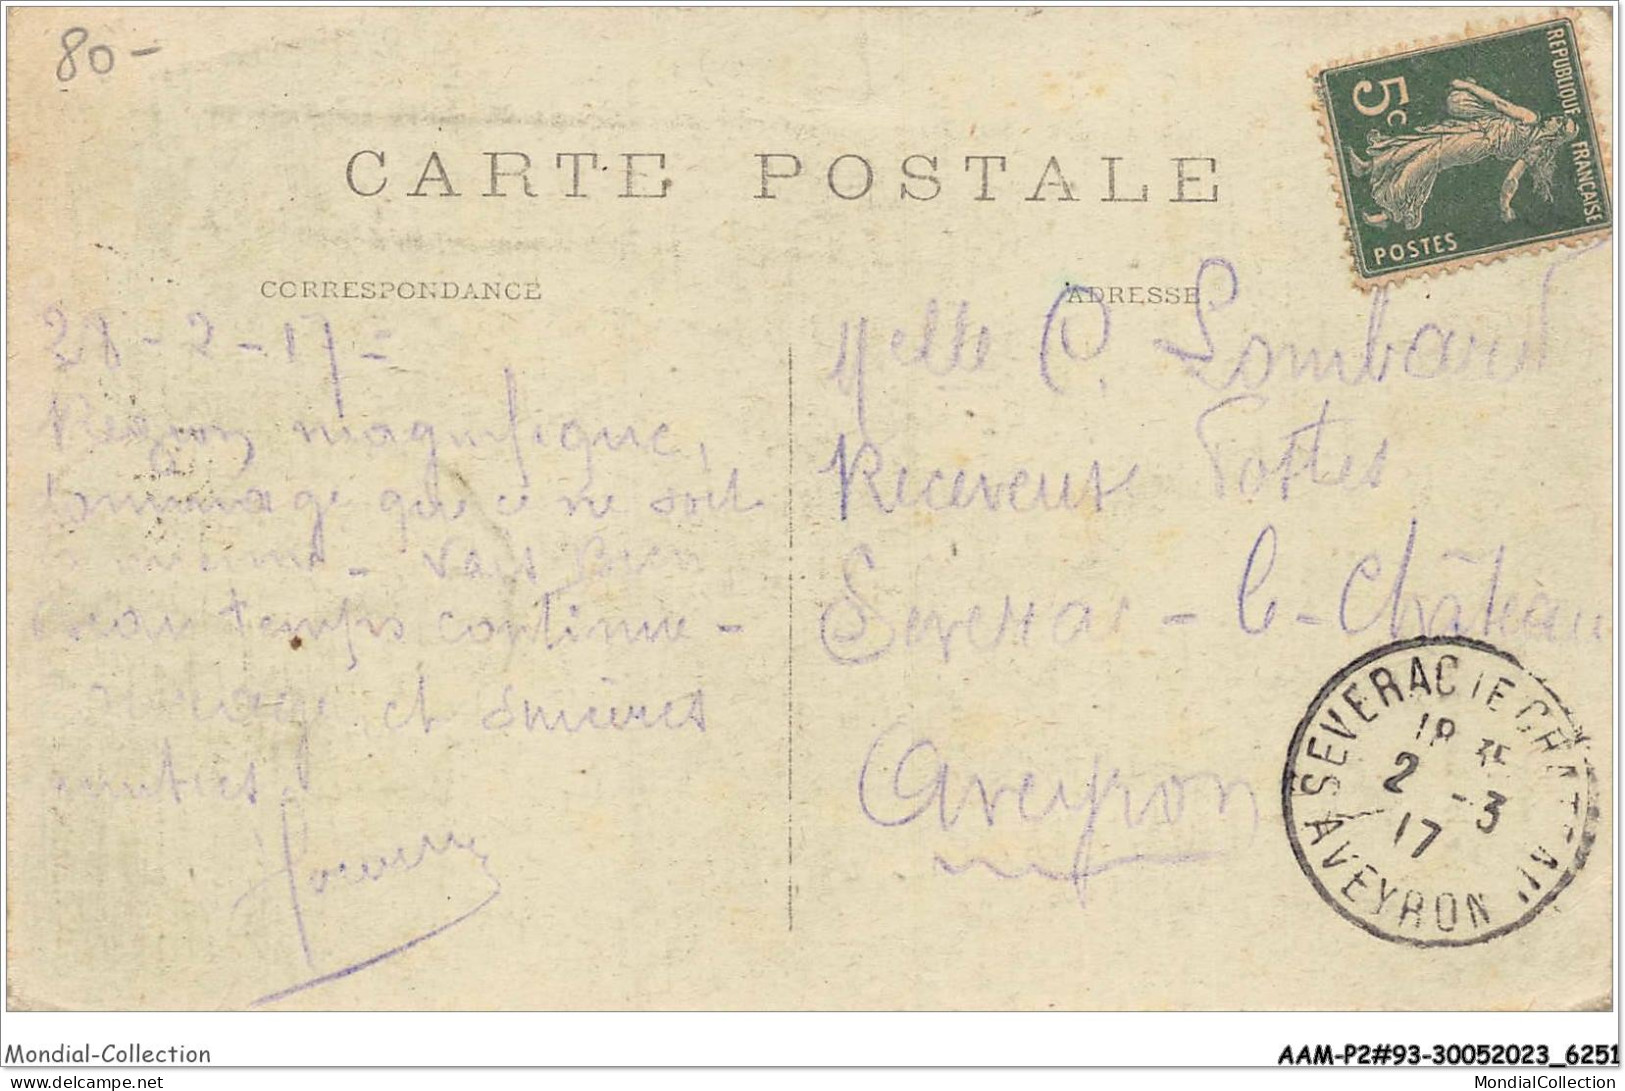 80-
REPUBLIQUE FRANÇAISE
5c
POSTES
CARTE POSTALE
CORRESPONDANCE
ADRESSE
28-2-17=
Region magnifique,
Dommage que ce ne soit
la mienne - Vais bien
Beau temps continue -
et sincères
amitiés.
Melle C. Lombard
Receveuse Postes
Severac-le-Château
Aveyron
SEVERAC LE CHATEAU
18
2 -3
17
AVEYRON
Mondial-Collection
AAM-P2#93-30052023_6251
www.delcampe.net
MondialCollection